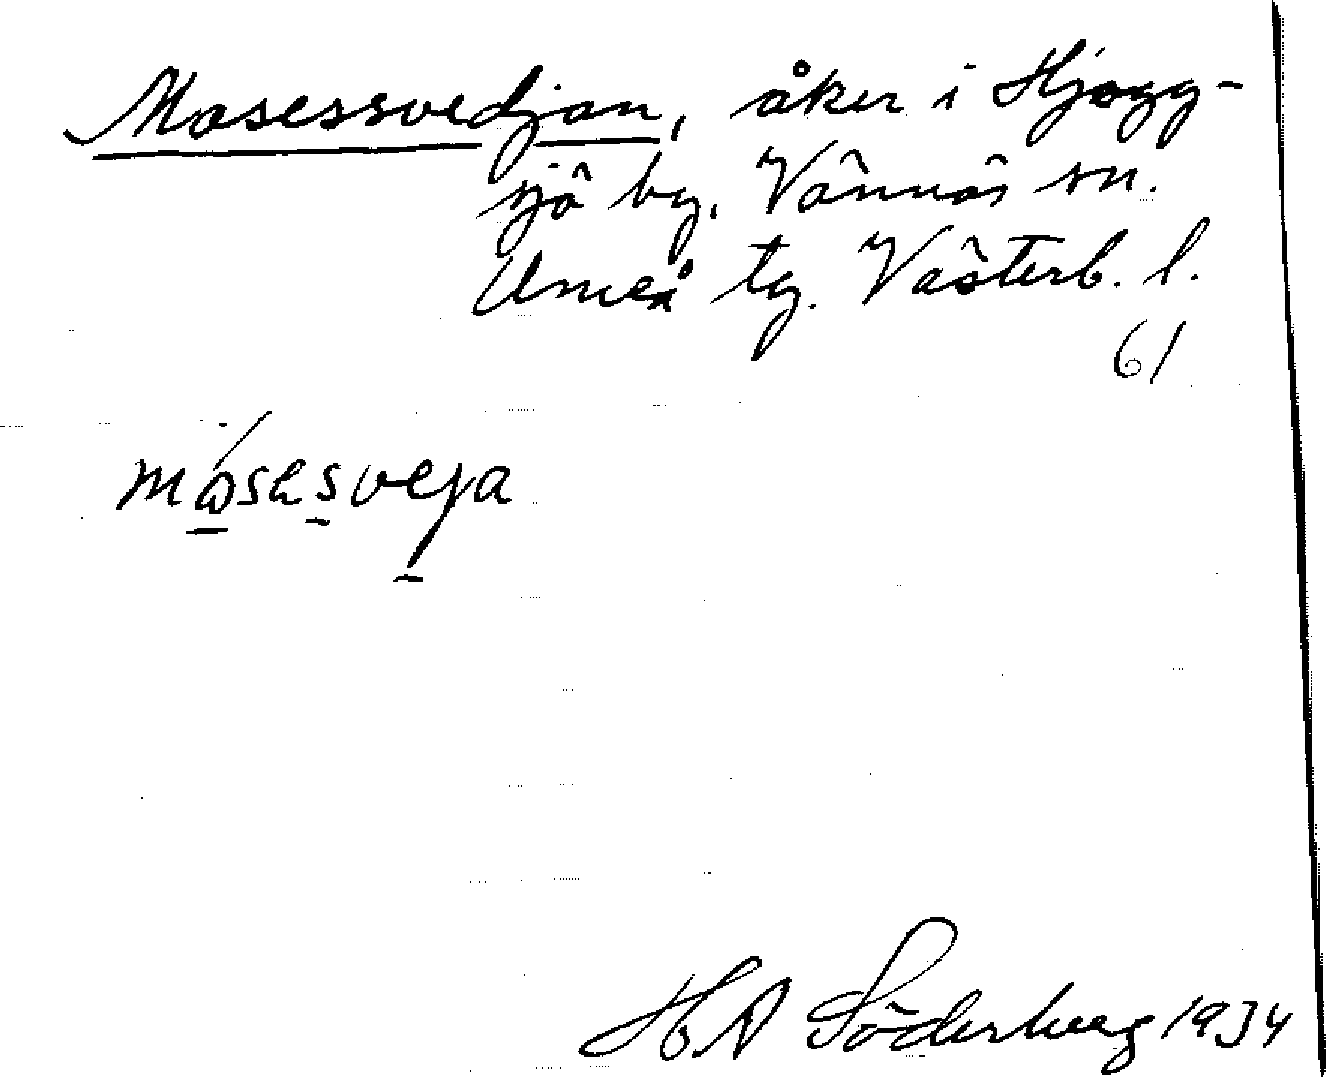 Mosessvedjan, åker i Hjogg-
sjö by. Vännäs sn.
Umeå tg. Västerb. l.
61
mosesveja
H A Söderberg 1934